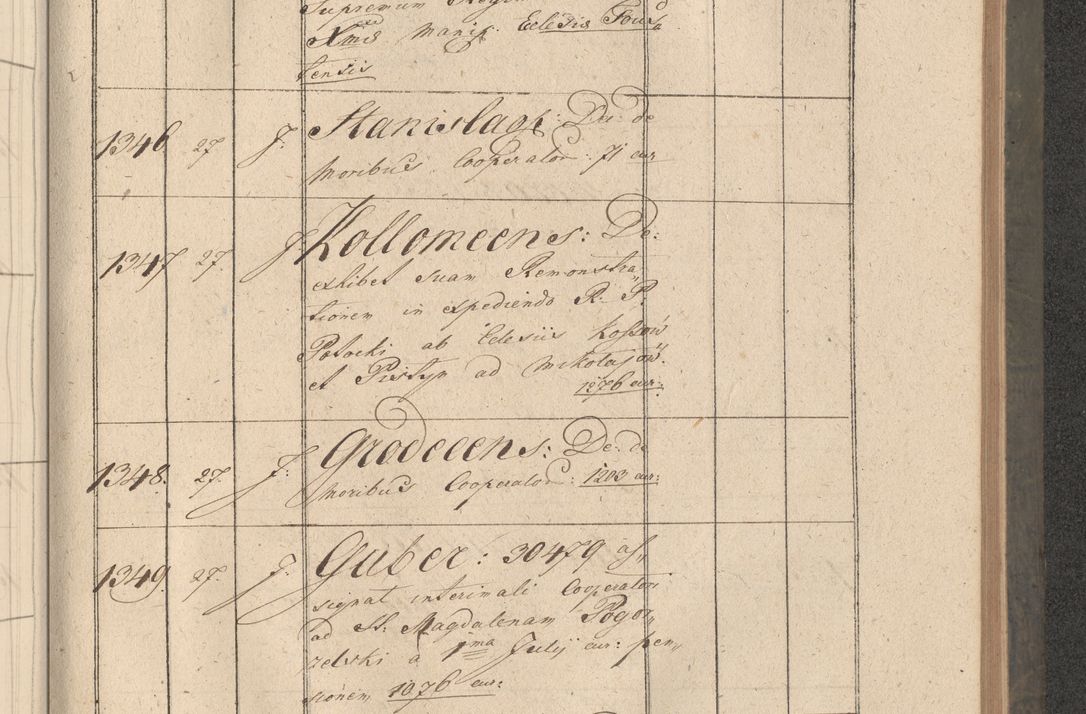 Supremum
Xmis manif. Eclesia Four
tensis
1346 27 J. Stanislao: De: de
moribus Cooperator: 71 cur
1347 27. J. Kollomeens: De:
exhibet suam Remonstra„
tionem in expediendo R. P.
Potocki ab Eclesiis Kossow
et Pistyn ad Mikołajow.
1276 cur:
1348. 27. J. Grodeeens: De: de
moribus Cooperator: 1203 cur:
1349. 27. J. Guber: 30479 as„
signat interimali Cooperatori
ad St. Magdalenam Pogor„
zelski a 1ma Julij cur: pen„
sionem 1076 cur: